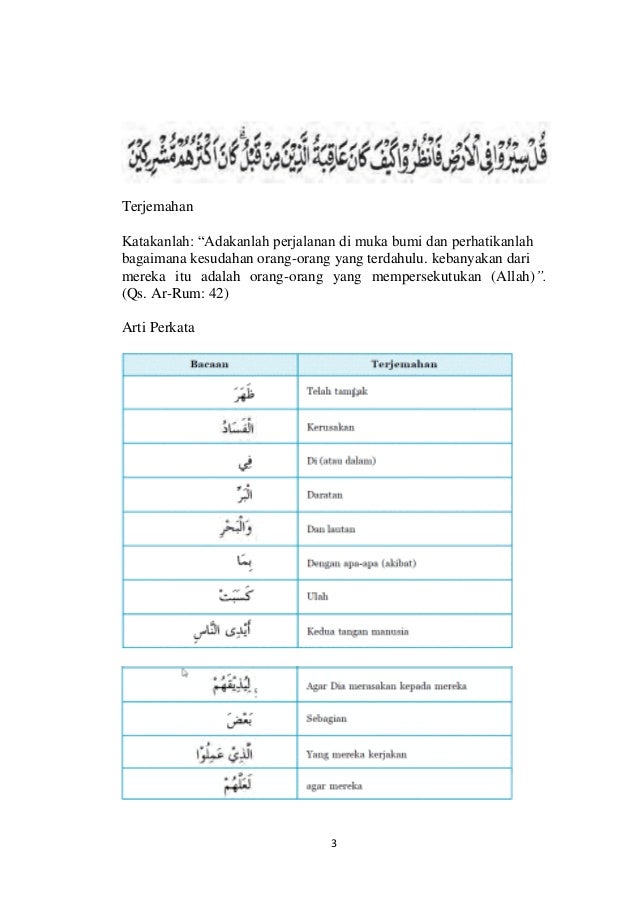 قُلْ سِيْرُوْا فِى الْاَرْضِ فَانْظُرُوْا كَيْفَ كَانَ عَاقِبَةُ الَّذِيْنَ مِنْ قَبْلُۗ كَانَ اَكْثَرُهُمْ مُّشْرِكِيْنَ
Terjemahan
Katakanlah: “Adakanlah perjalanan di muka bumi dan perhatikanlah
bagaimana kesudahan orang-orang yang terdahulu. kebanyakan dari
mereka itu adalah orang-orang yang mempersekutukan (Allah)”.
(Qs. Ar-Rum: 42)
Arti Perkata
Bacaan Terjemahan
ظَهَرَ Telah tampak
الْفَسَادُ Kerusakan
فِي Di (atau dalam)
الْبَرِّ Daratan
وَالْبَحْرِ Dan lautan
بِمَا Dengan apa-apa (akibat)
كَسَبَتْ Ulah
أَيْدِى النَّاسِ Kedua tangan manusia
لِيُذِيْقَهُمْ Agar Dia merasakan kepada mereka
بَعْضَ Sebagian
الَّذِيْ عَمِلُوْا Yang mereka kerjakan
لَعَلَّهُمْ agar mereka
3